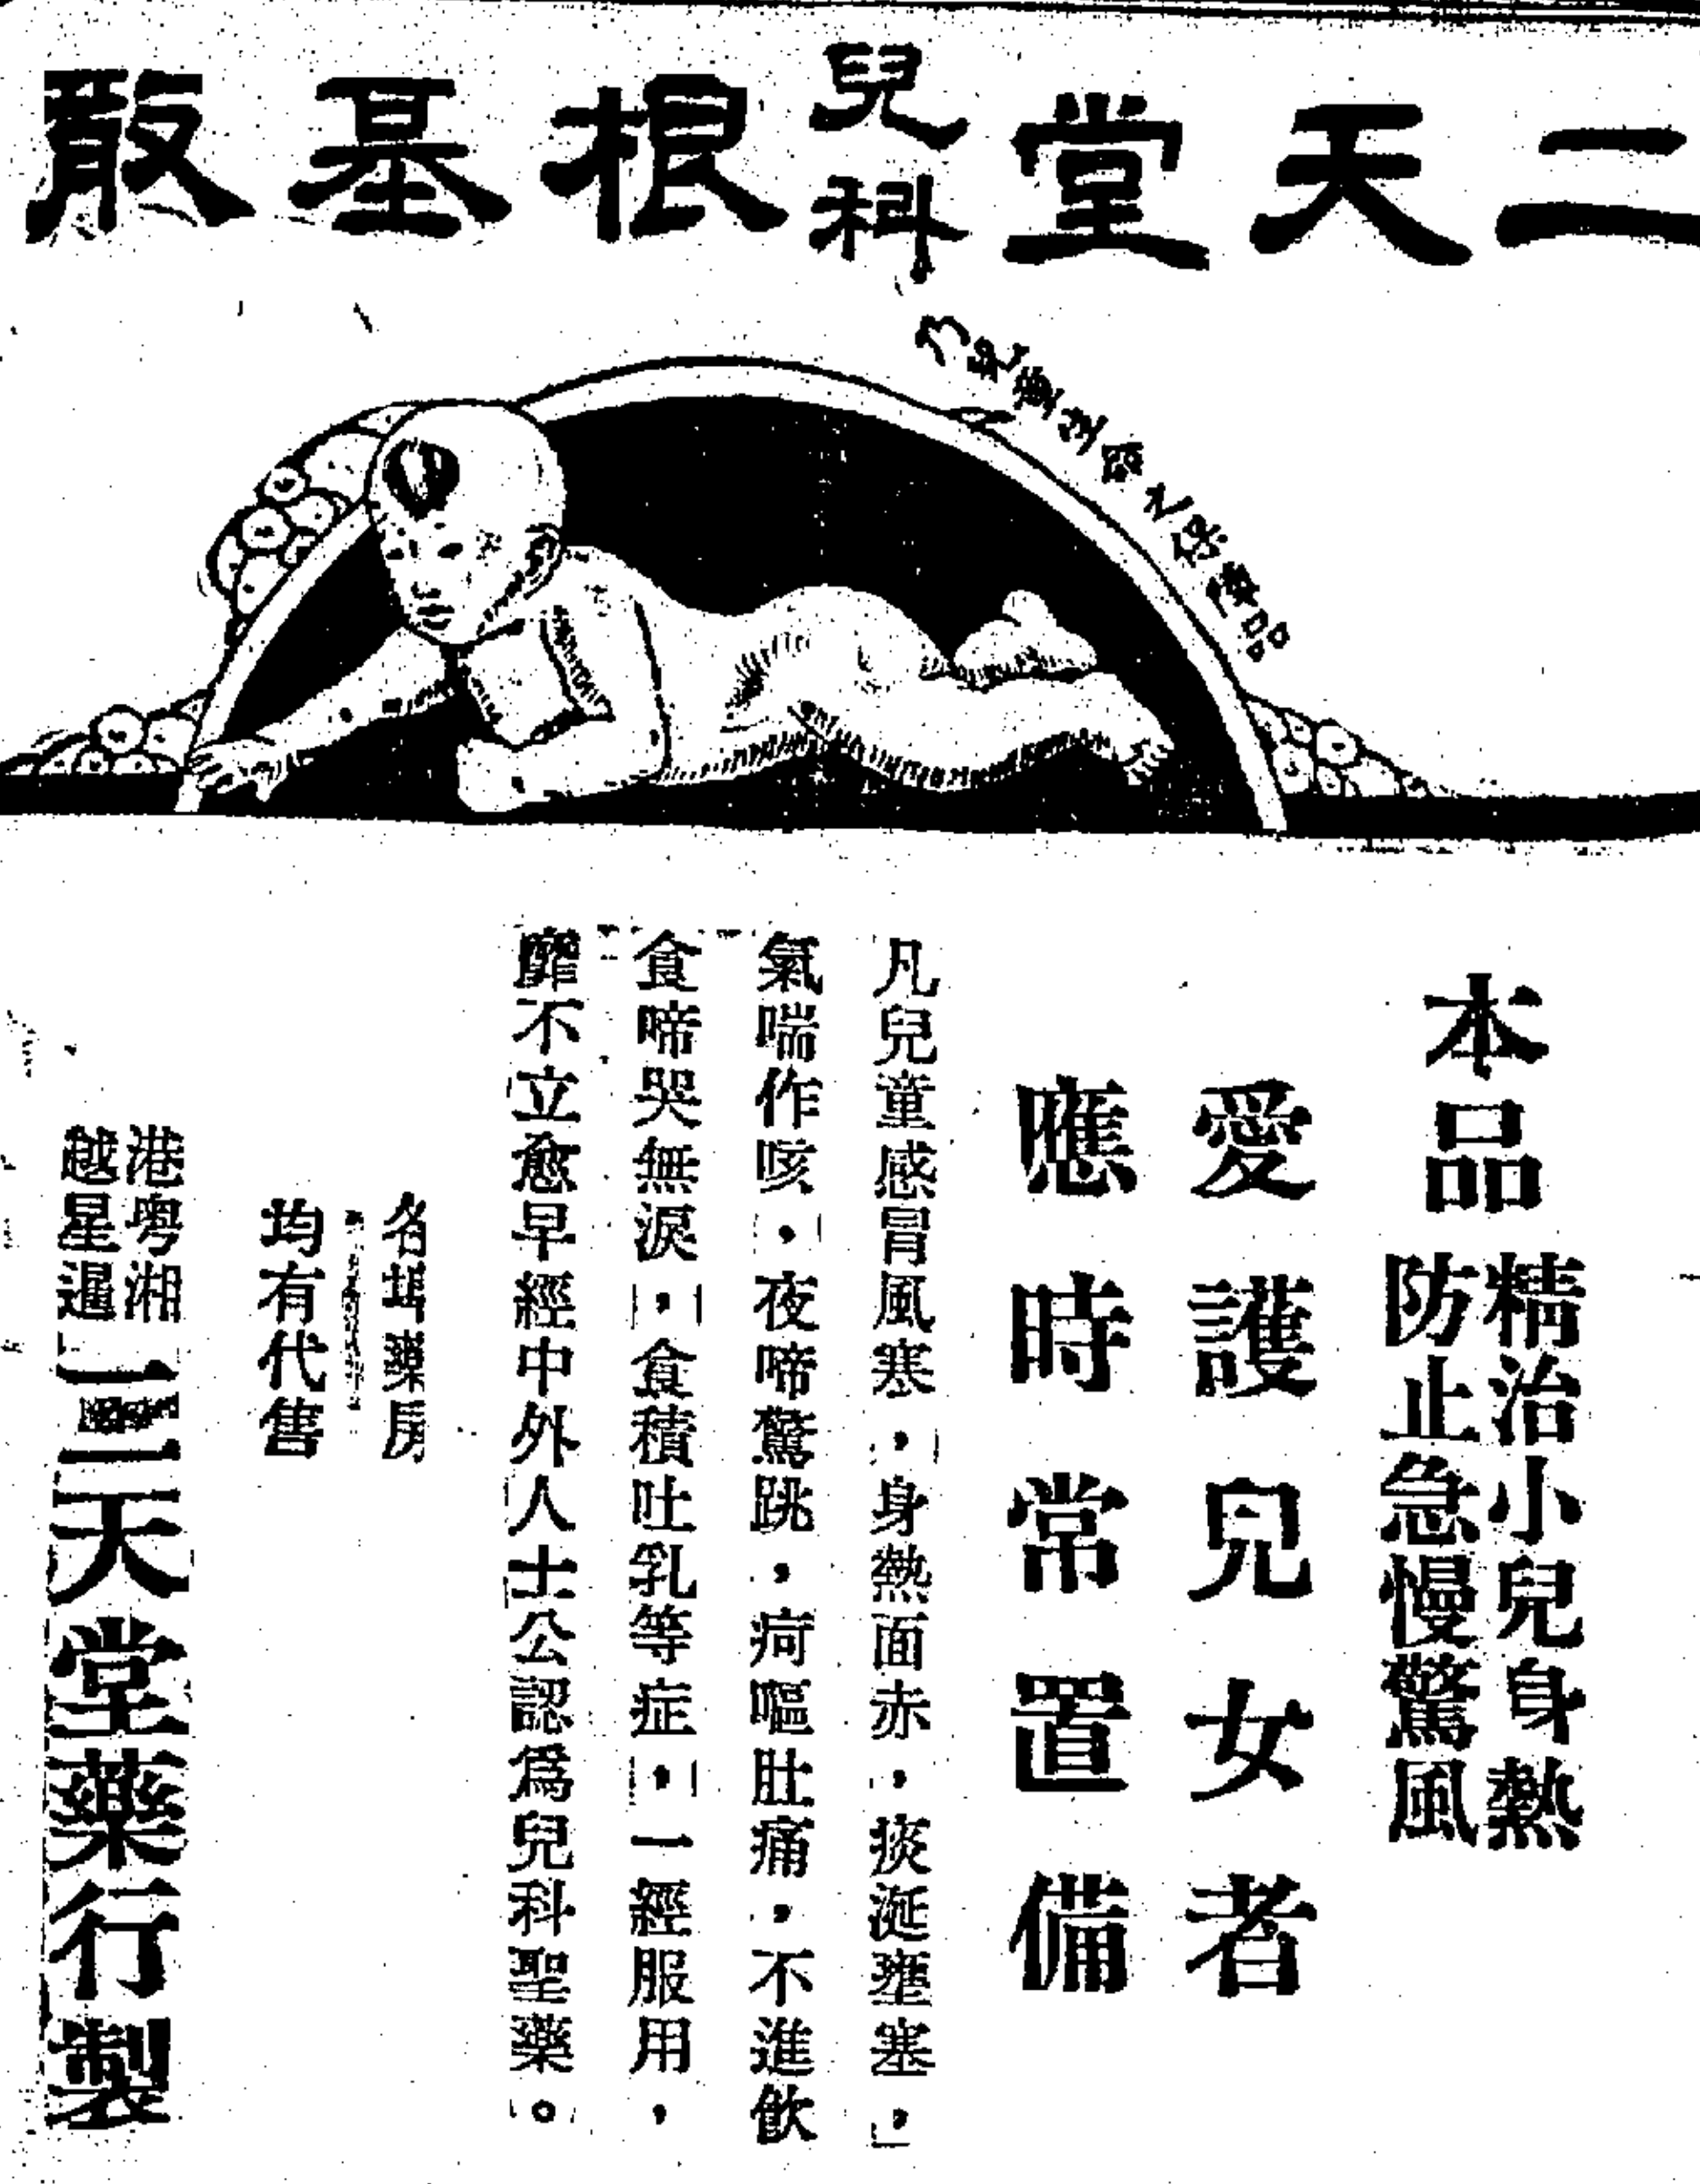 二天堂兒科根基散
乃兒童生命之保障品
本品精治小兒身熱
防止急慢驚風
愛護兒女者
應時常置備
凡兒童感冒風寒，身熱面赤，痰涎壅塞，
氣喘作咳，夜啼驚跳，疴嘔肚痛，不進飲
食啼哭無淚，食積吐乳等症，一經服用，
靡不立愈早經中外人士公認爲兒科聖藥。
各埠藥房
均有代售
港粵湘
越星暹
二天堂藥行製